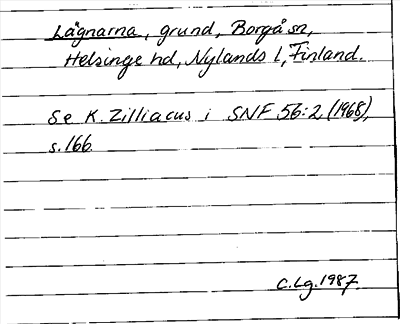 Lågnarna, grund, Borgå sn,
Helsinge hd, Nylands l, Finland.
Se K. Zilliacus i SNF 56:2 (1968),
s. 166
C.Lg. 1987.